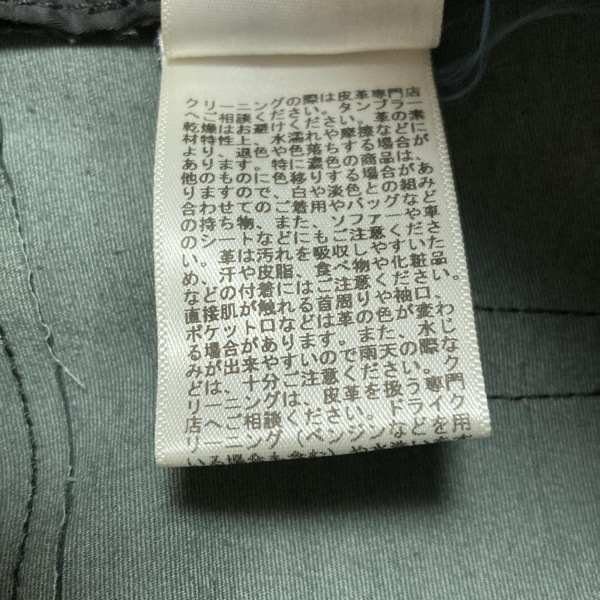 クリーニングの際は皮革専門店
へご相談ください。タンブラー
乾燥はお避けください。革の素
材特性上、水濡れや摩擦などに
より、退色や色落ちする場合が
あります。特に濃色の商品は、
他のものに色移りする場合があ
りますので、白や淡色との組み
合わせてのご着用やバッグなど
の持ち物、また、ソファーや車
のシートなどにもご注意くださ
い。革は汚れを吸収しやすいた
め、汗や皮脂、食べ物や化粧品
などの付着にはご注意ください。
直接肌に触れる首周りや袖口、
ポケット口などは革の色が変わ
る場合があります。また、水じ
みが出来やすいので雨天の際な
どは、十分ご注意ください。ク
リーニングは、皮革を扱う専門
店へご相談ください。ドライク
リーニング（ベンジンなどを用